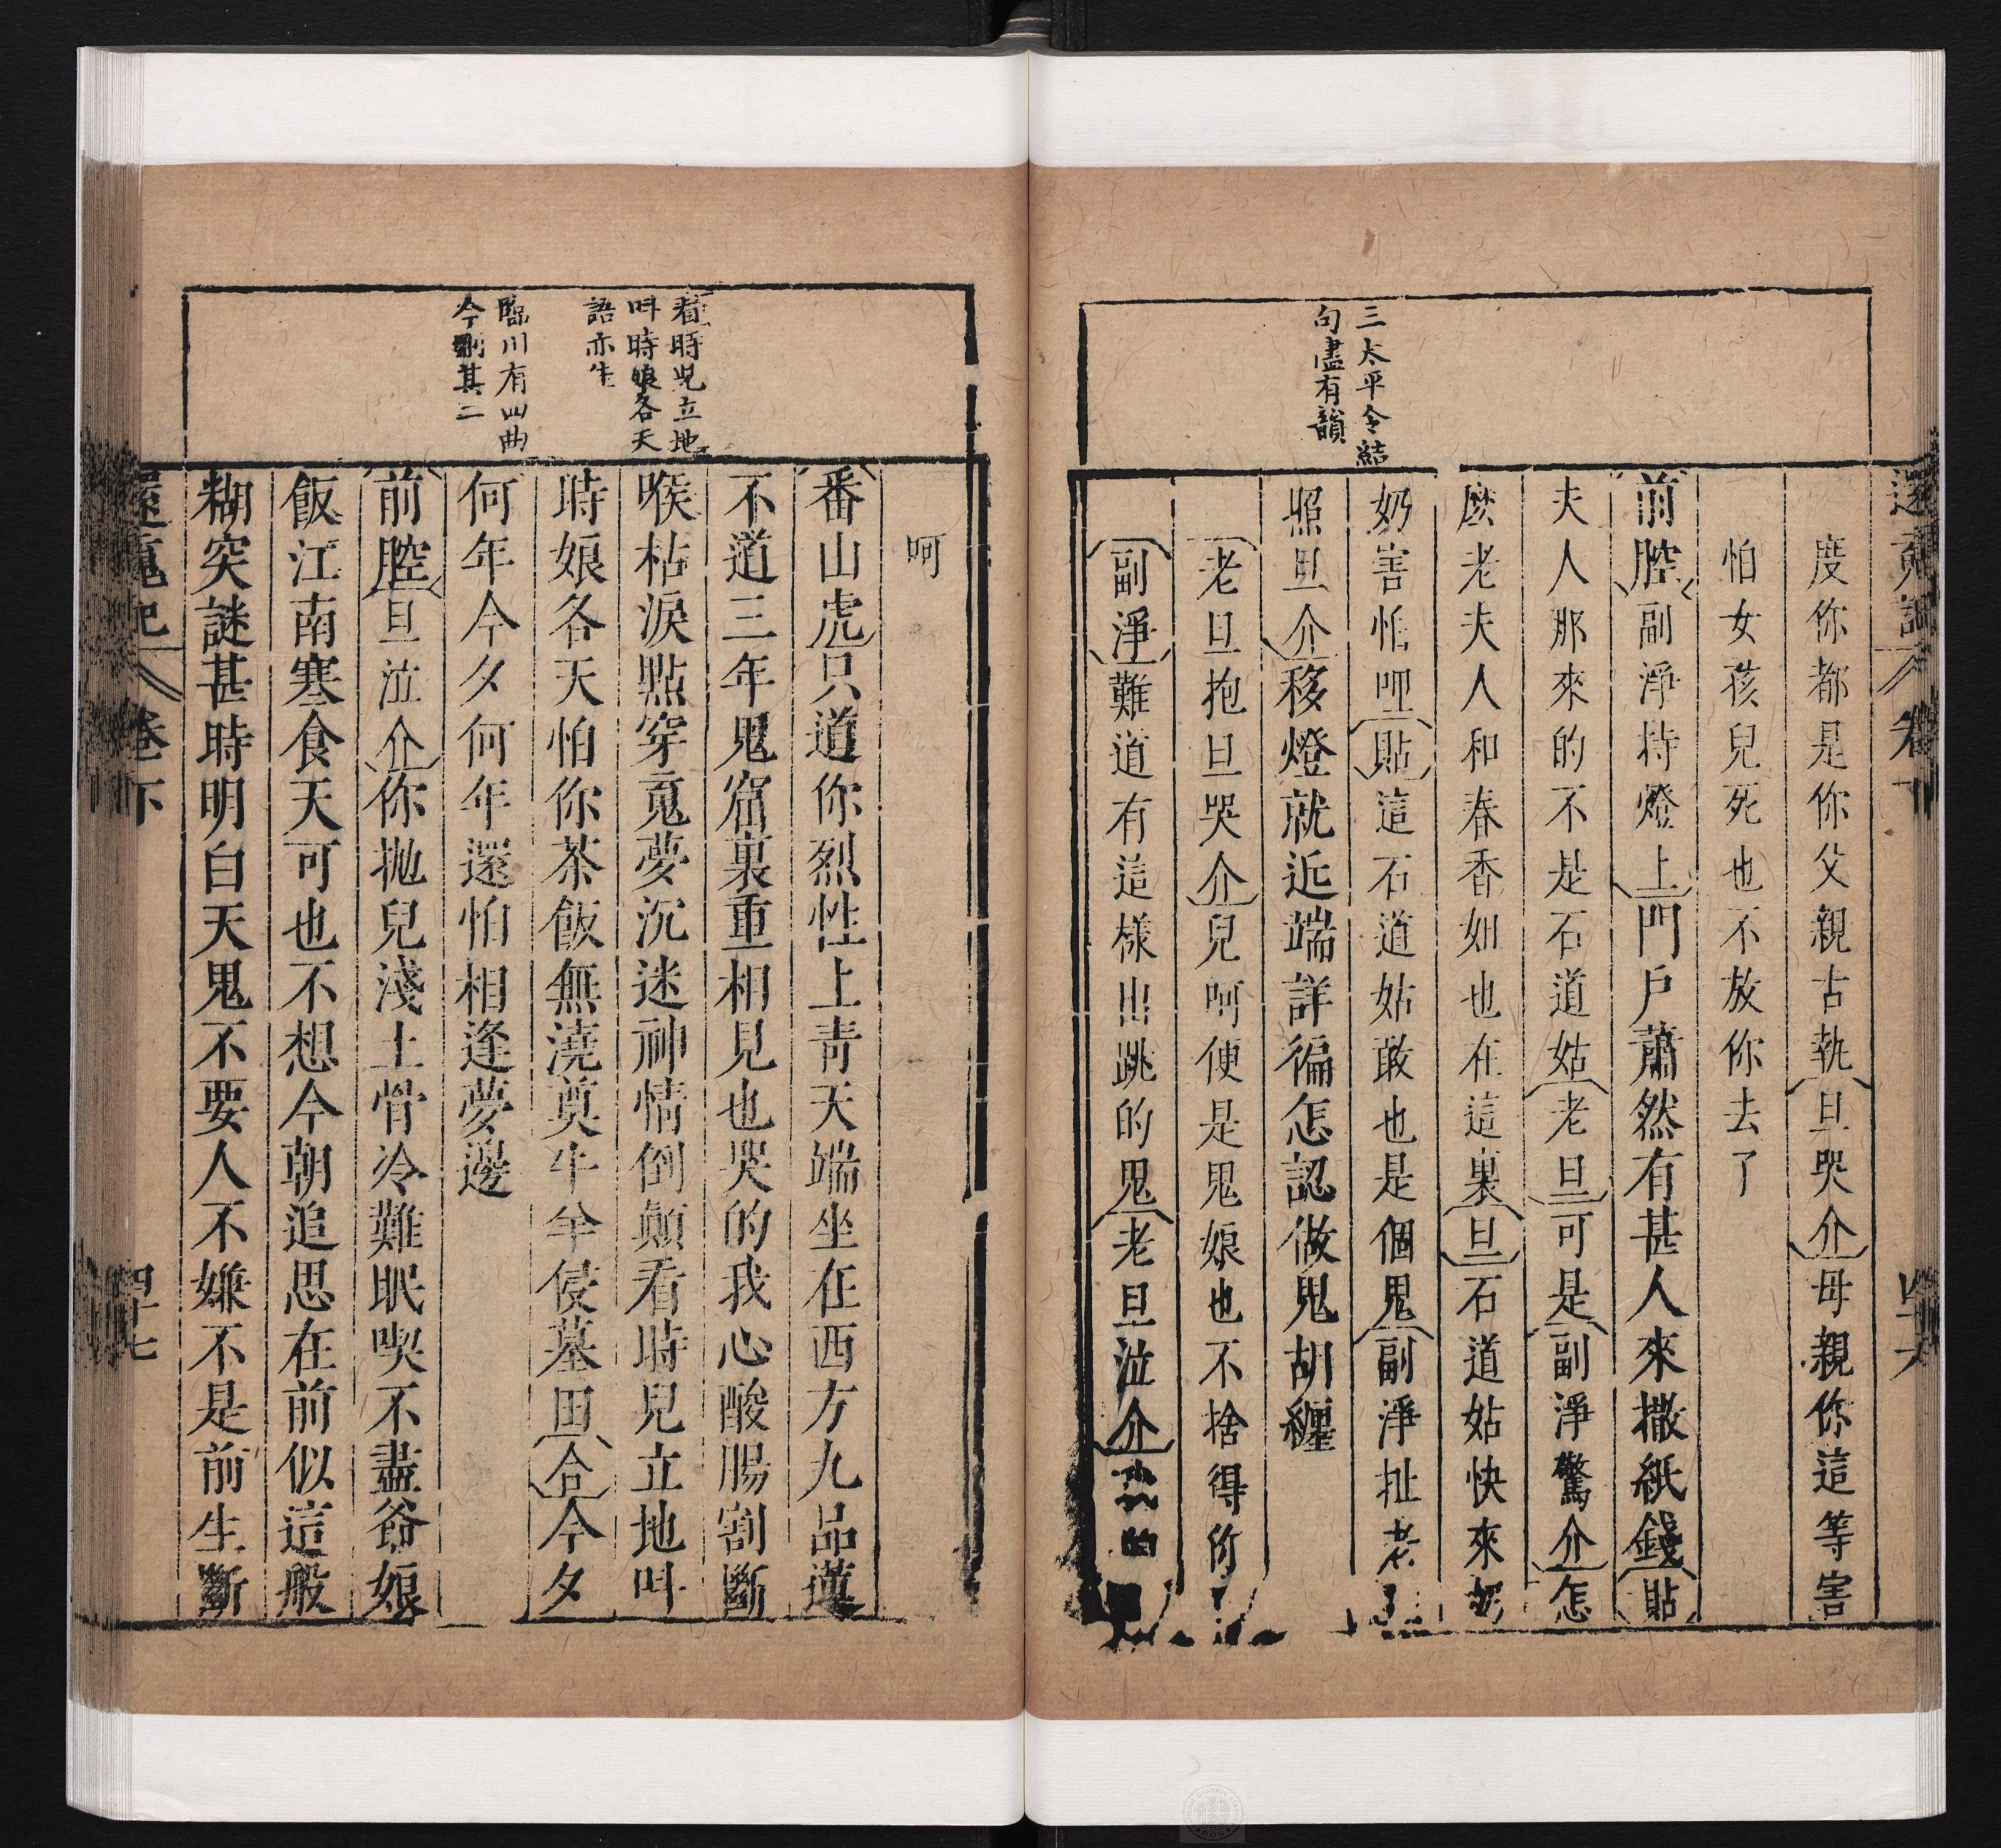 還魂記 卷下 四十六
三太平令結
句盡有韻
度你都是你父親古執旦哭介母親你這等害
怕女孩兒死也不放你去了
前腔副淨持燈上門戶蕭然有甚人來撒紙錢貼
夫人那來的不是石道姑老旦可是副淨驚介怎
麽老夫人和春香姐也在這裏旦石道姑快來奶
奶害怕哩貼這石道姑敢也是個鬼副淨扯老
照旦介移燈就近端詳徧怎認做鬼胡纏
老旦抱旦哭介兒呵便是鬼娘也不捨得你
副淨難道有這樣出跳的鬼老旦泣介
看時兒立地
呌時娘各天
語亦生
臨川有四曲
今刪其二
呵
番山虎只道你烈性上青天端坐在西方九品蓮
不道三年鬼窟裏重相見也哭的我心酸腸割斷
喉枯淚點穿䰟夢沉迷神情倒顛看時兒立地呌
時娘各天怕你茶飯無澆奠牛羊侵墓田合今夕
何年今夕何年還怕相逢夢邊
前腔旦泣介你抛兒淺土骨冷難眠喫不盡爺娘
飯江南寒食天可也不想今朝追思在前似這般
糊突謎甚時明白天鬼不要人不嫌不是前生斷
還䰟記 卷下 四十七